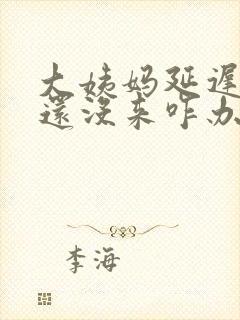 大姨妈延遲
還没来咋办
李海